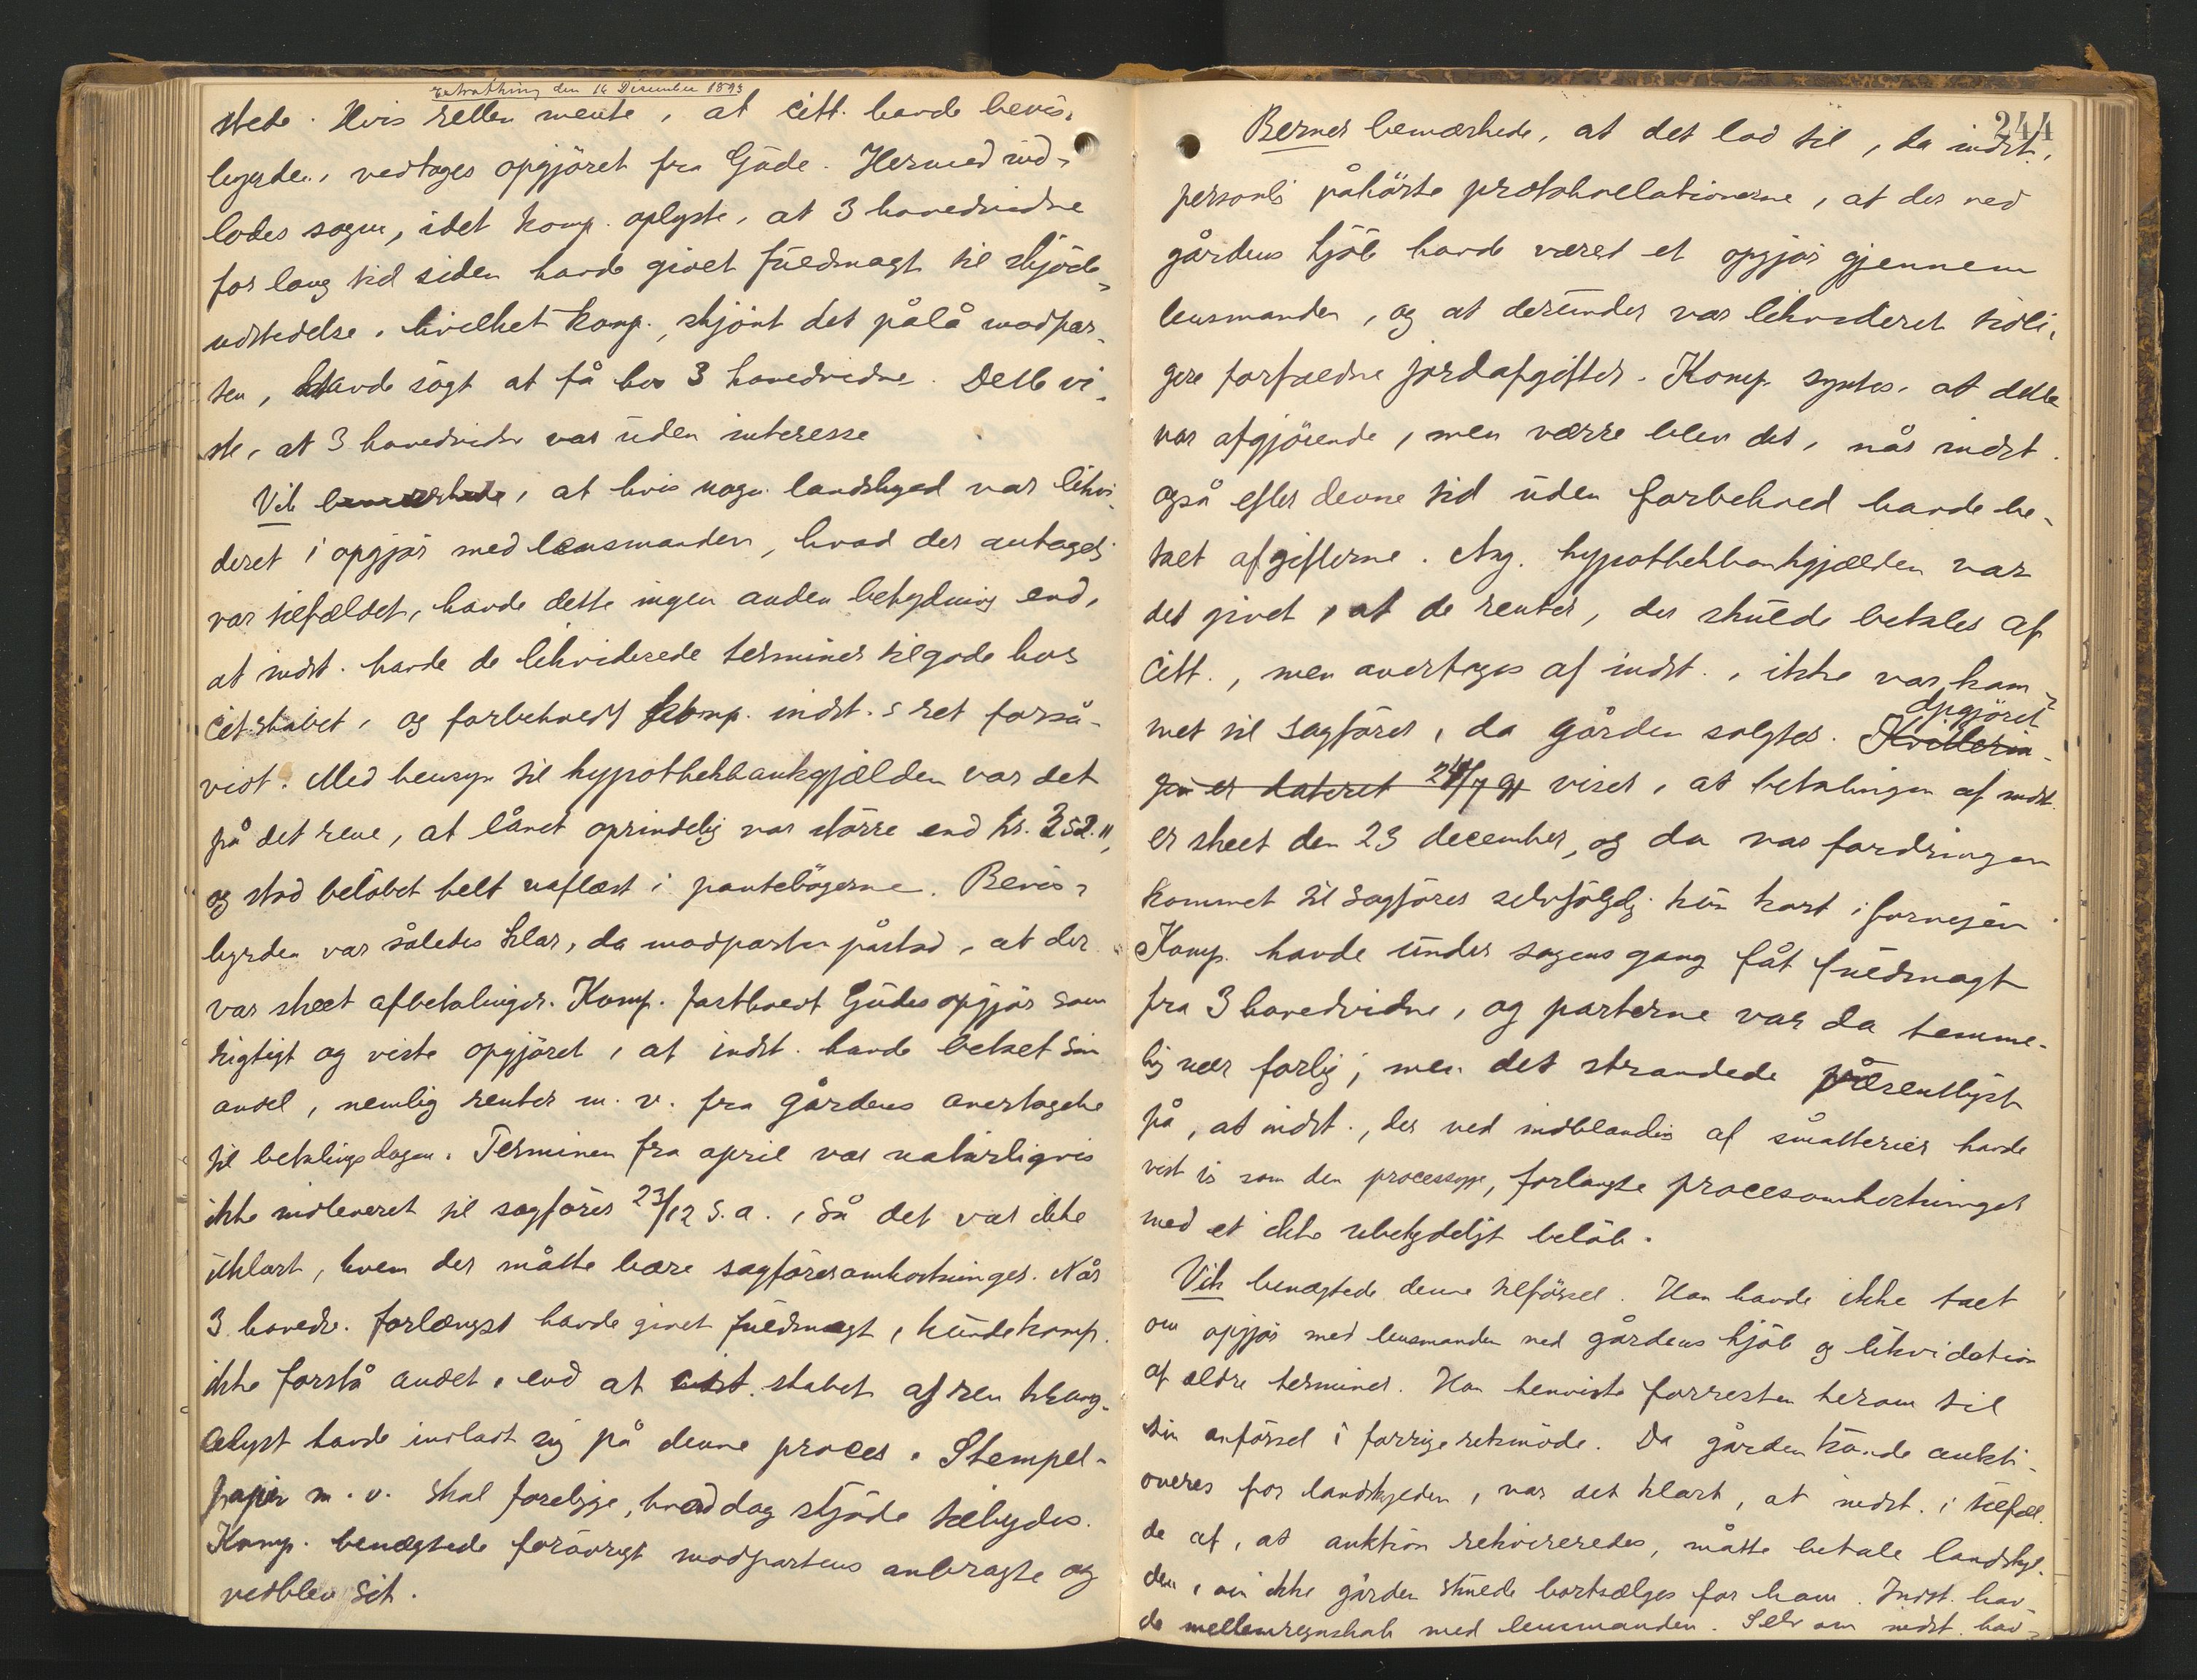 Extrathing den 16 December 1893
stede. Hvis retten mente, at citt. havde bevis-
byrden, vedtages opgjöret fra Gude. Hermed ind-
lodes sagen, idet komp. oplyste, at 3 hovedvidne
for lang tid siden havde givet fuldmagt til skjöde-
udstedelse, hvilket komp., skjönt det pålå modpar-
ten, havde sögt at få hos 3 hovedvidne. Dette vi-
ste, at 3 hovedvidne var uden interesse
Vik bemærkede, at hvis nogen landskyld var likvi-
deret i opgjör med lensmanden, hvad der antages
var tilfældet, havde dette ingen anden betydning end,
at indst. havde de likviderede terminer tilgode hos
cit.skabet, og forbeholdt komp. indst.s ret forså-
vidt. Med hensyn til hypothekbankgjælden var det
på det rene, at lånet oprindelig var större end kr. 252.",
og stod belöbet helt uaflæst i pantebögerne. Bevis-
byrden var således klar, da modparten påstod, at der
var skeet afbetalinger. Komp. fastholdt Gudes opgjör som
rigtigt og viste opgjöret, at indst. havde betalt sin
andel, nemlig renter m. v. fra gårdens overtagelse
til betalingsdagen. Terminen fra april var naturligvis
ikke indleveret til sagförer 23/12 s.a., så det var ikke
uklart, hvem der måtte bære sagföreromkostninger. Når
3 hovedv. forlængst havde givet fuldmagt, kunde komp.
ikke forstå andet, end at citt.skabet af ren krang-
lelyst havde indladt sig på denne proces. Stempel-
papir m. v. skal foreligge, hvad dag skjöde tilbydes.
Komp. benægtede forövrigt modpartens anbragte og
vedblev sit.
244
Berner bemærkede, at det lod til, da indst.
personlig påhörte protokollationerne, at der ved
gårdens kjöb havde været et opgjör gjennem
lensmanden, og at derunder var likvideret tidli-
gere forfaldne jordafgifter. Komp. syntes, at dette
var afgjörende, men værre blev det, når indst.
også efter denne tid uden forbehold havde be-
talt afgifterne. Ang. hypothekbankgjælden var
det givet, at de renter, der skulde betales af
citt., men overtoges af indst., ikke var kom-
met til sagförer, da gården solgtes. Opgjöret Kvitterin-
gen er dateret 24/7 91 viser, at betalingen af indst.
er skeet den 23 december, og da var fordringen
kommet til sagförer selvfölgelig kun kort i forvejen.
Komp. havde under sagens gang fåt fuldmagt
fra 3 hovedvidne, og parterne var da temme-
lig nær forlig; men det strandede væsentligst
på, at indst., der ved indblanding af småtterier havde
vist sig som den processyge, forlangte procesomkostninger
med et ikke ubetydeligt belöb.
Vik benægtede denne tilförsel. Han havde ikke talt
om opgjör med lensmanden ved gårdens kjöb og likvidation
af ældre terminer. Han henviste forresten herom til
sin anförsel i forrige retsmöde. Da gården kunde aukti-
oneres for landskylden, var det klart, at indst. i tilfæl-
de af, at auktion rekvireredes, måtte betale landskyl-
den, om ikke gården skulde bortsælges for ham. Indst. hav-
de mellemregnskab med lensmanden. Selv om indst. hav-